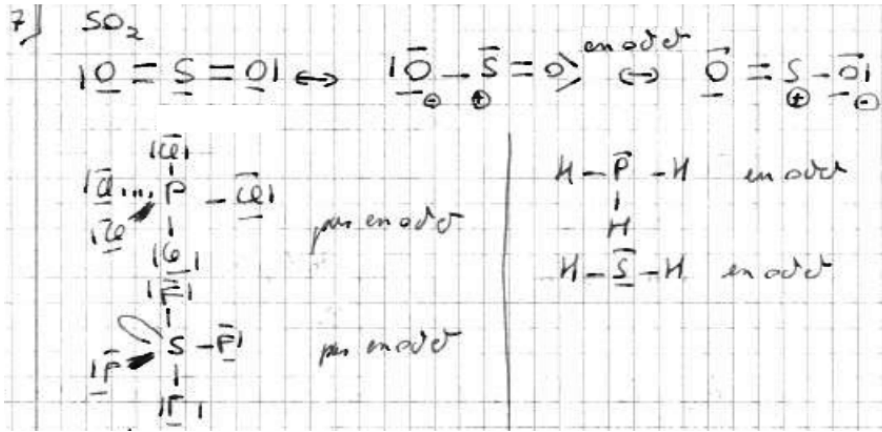 7) SO₂
|O = S = O| ↔ |O – S = O⟩ en octet ↔ O = S – O|
⊖ ⊕ ⊕ ⊖
|Cl|
|Cl ... P – Cl|
|Cl
|Cl|
pas en octet
|F|
S – F|
|F
|F|
pas en octet
H – P – H en octet
H
H – S – H en octet